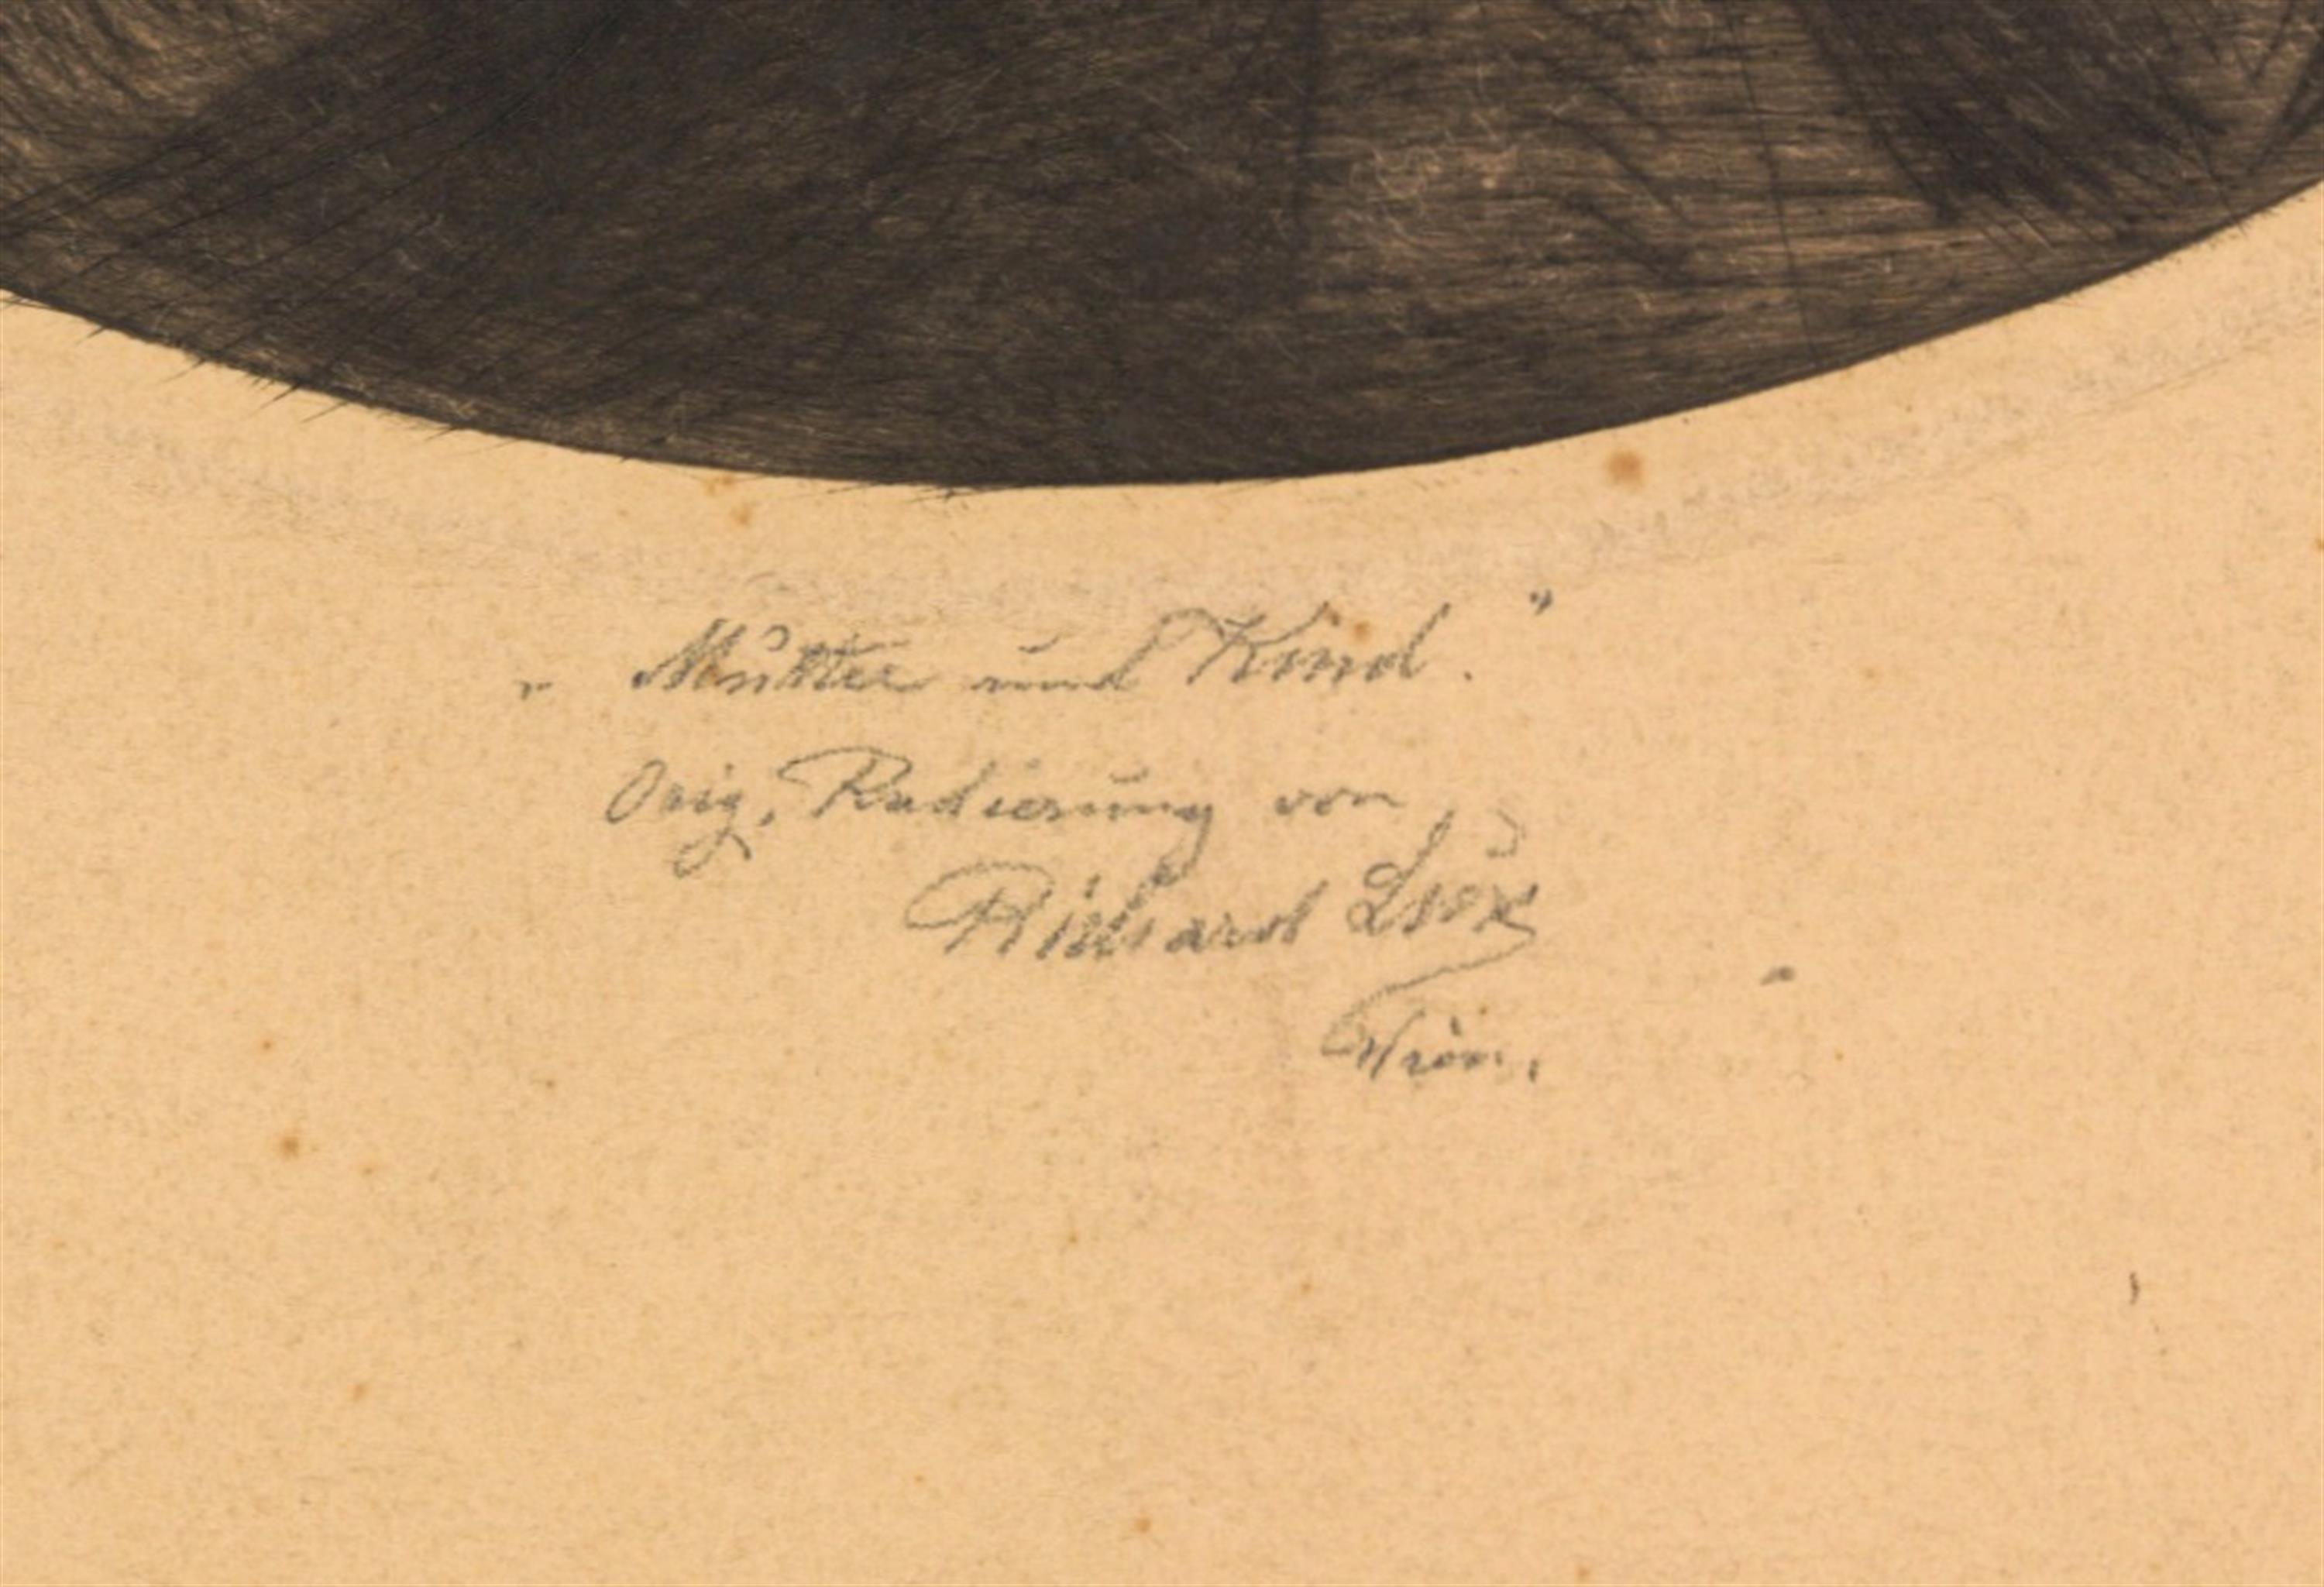 „Mutter und Kind."
Orig. Radierung von
Richard Lux
Wien.